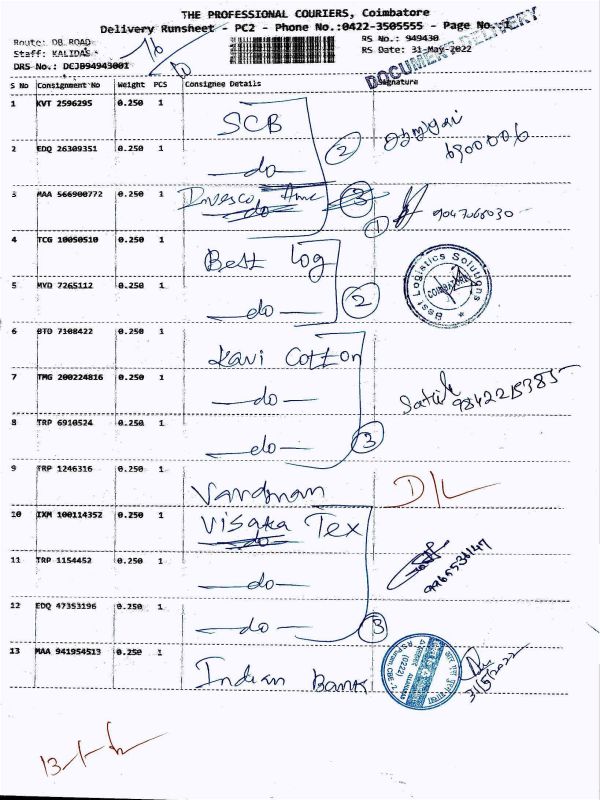 THE PROFESSIONAL COURIERS, Coimbatore
Delivery Runsheet - PC2 - Phone No.:0422-3505555 - Page No.:1
Route: DB ROAD
RS No.: 949430
Staff: KALIDAS
RS Date: 31-May-2022
DRS No.: DCJB94943001
DOCUMENT DELIVERY
S No Consignment No Weight PCS Consignee Details Signature
1 KVT 2596295 0.250 1 SCB
2 EDQ 26309351 0.250 1 —do— 2
6900006
3 MAA 566900772 0.250 1 Invesco 3
1
4 TCG 10050510 0.250 1 Best Log
Best Logistics Solutions
COIMBATORE
5 MYD 7265112 0.250 1 —do— 2
6 BTD 7108422 0.250 1 Kavi Cotton
7 TMG 200224816 0.250 1 —do—
9842215385
8 TRP 6910524 0.250 1 —do— 3
9 TRP 1246316 0.250 1 Vardman D/L
10 IXM 100114352 0.250 1 Visaka Tex
11 TRP 1154452 0.250 1 —do—
9965536147
12 EDQ 47353196 0.250 1 —do— 3
13 MAA 941954513 0.250 1 Indian Bank
31/5/2022